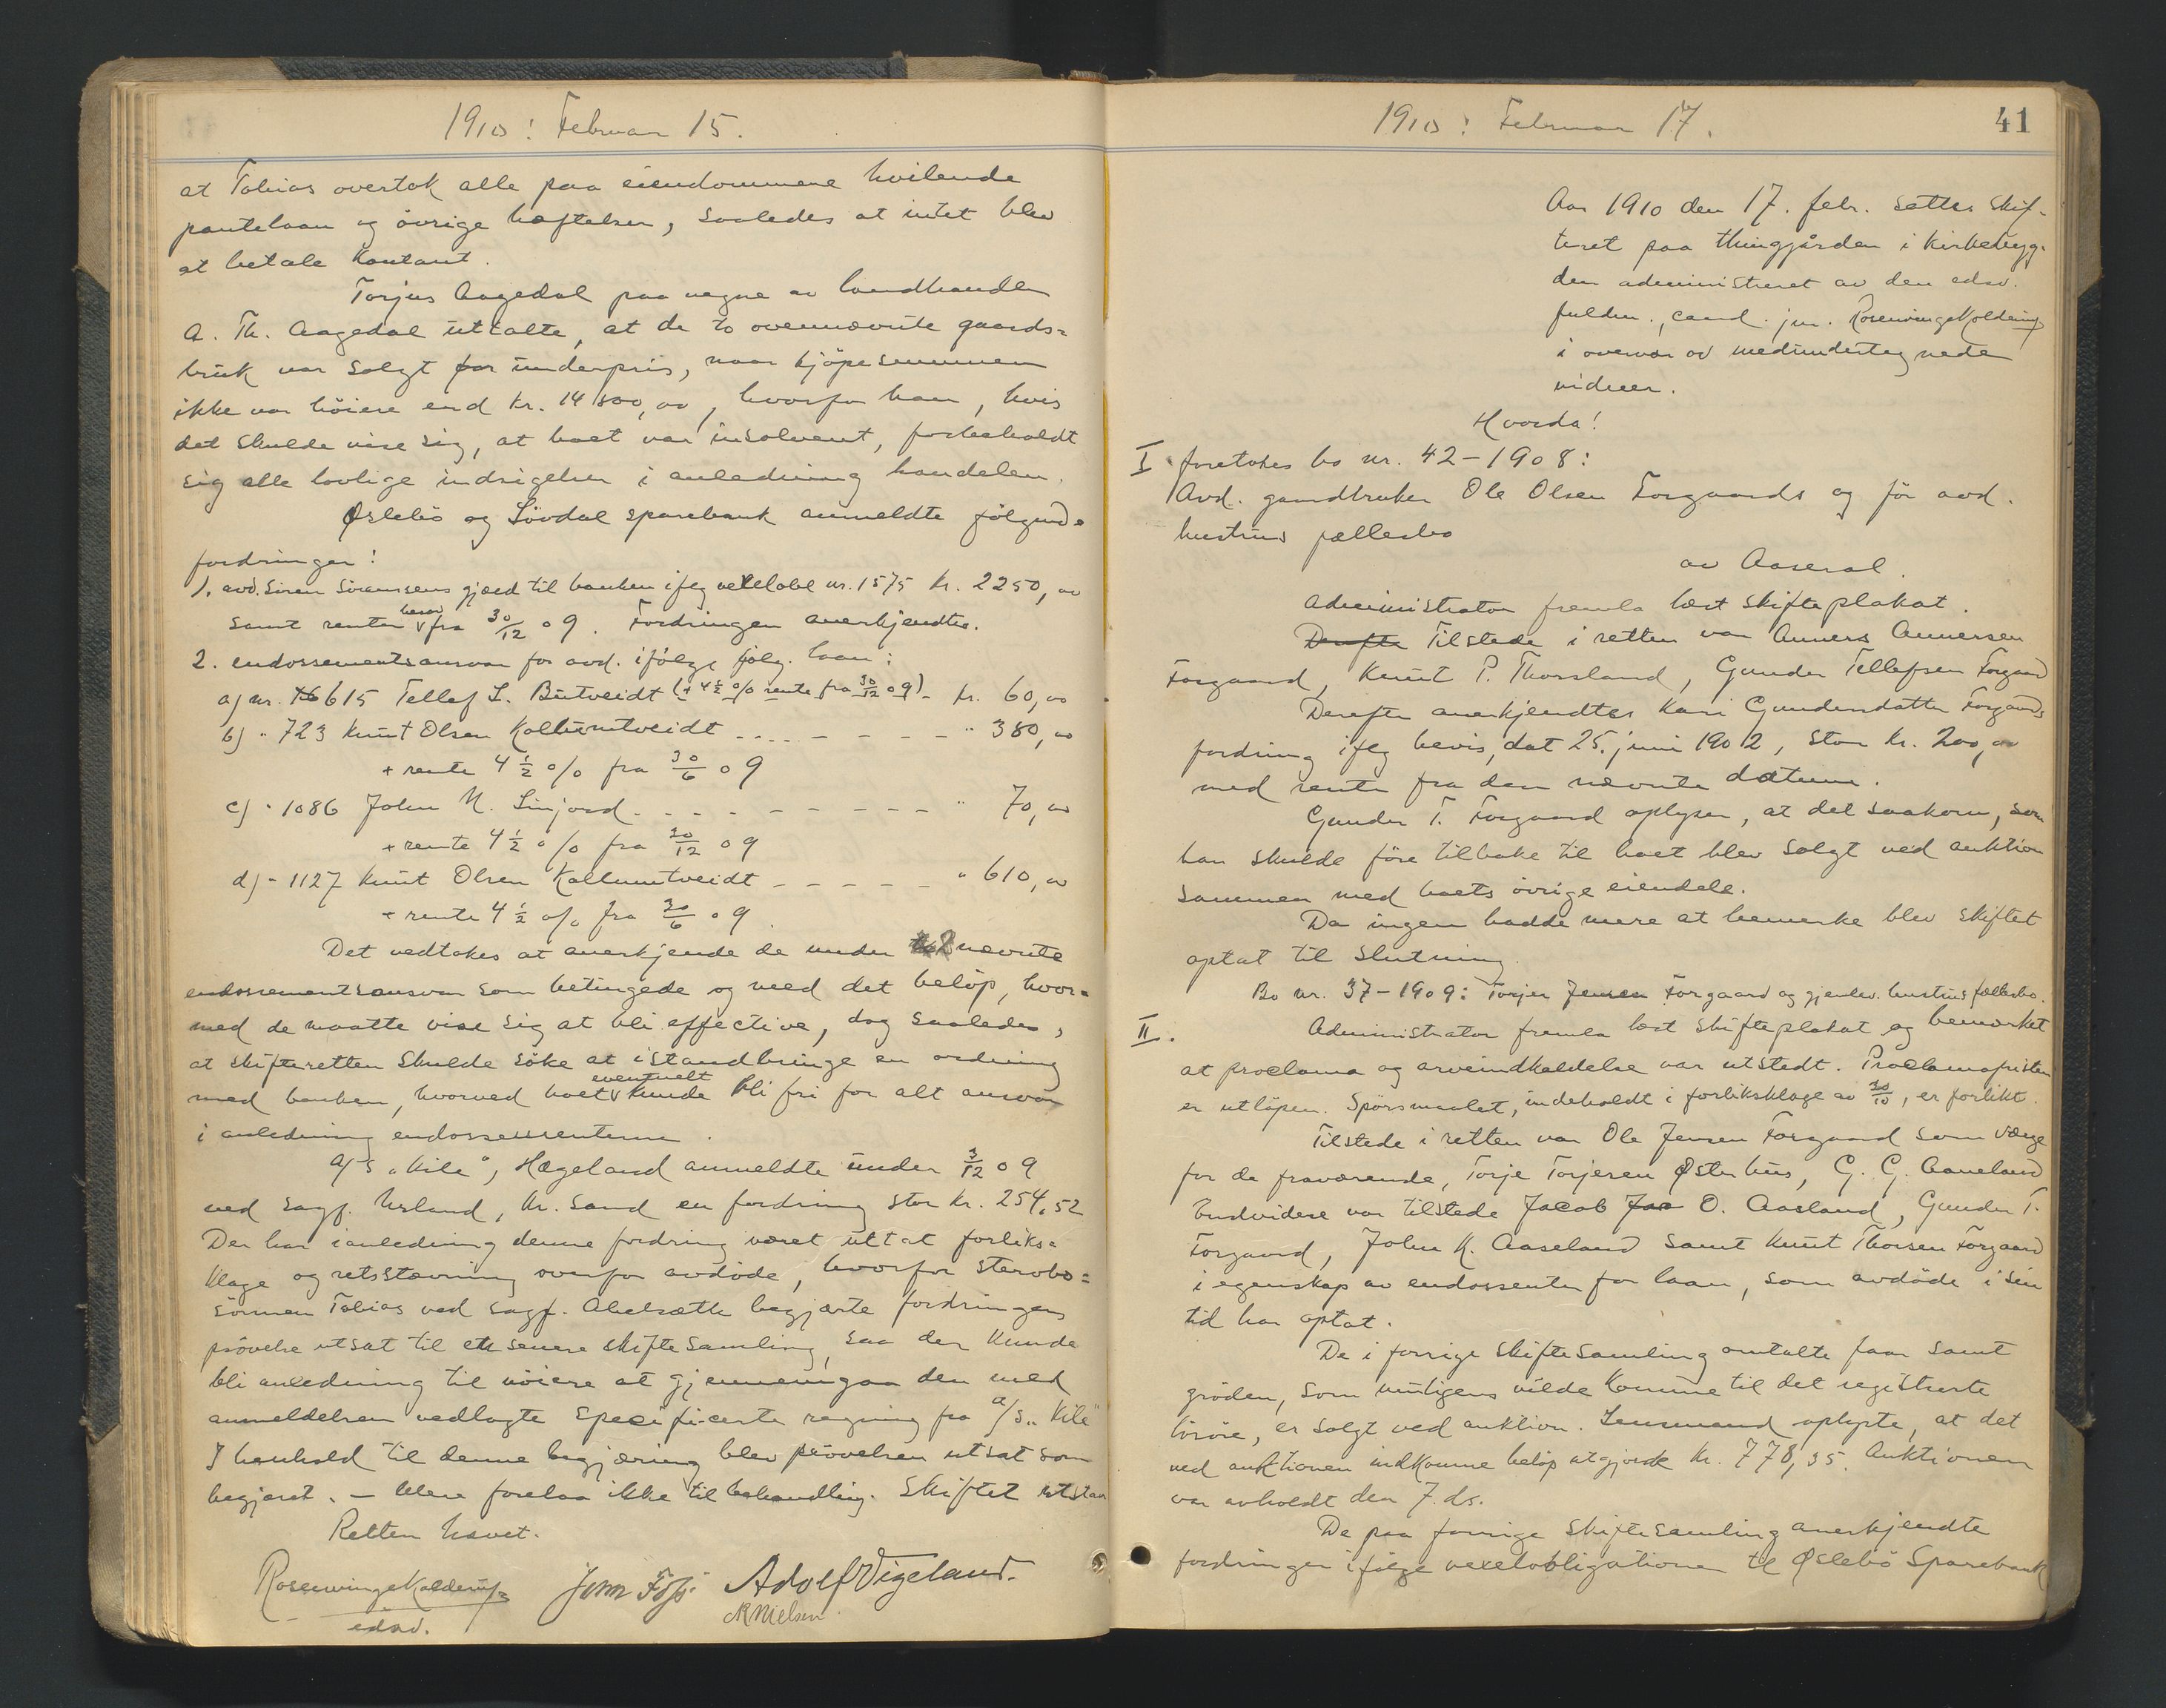 1910: Februar 15.
at Tobias overtok alle paa eiendommene hvilende
pantelaan og øvrige hæftelser, saaledes at intet blev
at betale kontant.
Torjus Aagedal paa vegne av landhandler
A. Th. Aagedal uttalte, at de to ovennævnte gaards=
bruk var solgt for underpris, naar kjöpesummen
ikke var höiere end kr. 14 500,00, hvorfor han, hvis
det skulde vise sig, at boet var insolvent, forbeholdt
sig alle lovlige indsigelser i anledning handelen.
Øslebö og Lövdal sparebank anmeldte fölgende
fordringer:
1. avd. Sören Sörensens gjæld til banken ifeg vekselobl nr. 1575 kr. 2250,00
samt renter herav fra 30/12 09. Fordringen anerkjendtes.
2. endossementsansvar for avd. ifölge fölg. laan:
a) nr. 615 Tellef L. Butveidt (+ 4½ % rente fra 30/12 09) - kr. 60,00
b) " 723 Knut Olsen Kallumtveidt - - - - - - - " 380,00
+ rente 4½ % fra 30/6 09
c) " 1086 John N. Linjord - - - - - - - - " 70,00
+ rente 4½ % fra 30/12 09
d) " 1127 Knut Olsen Kallumtveidt - - - - - " 610,00
+ rente 4½ % fra 30/6 09.
Det vedtokes at anerkjende de under 2 nævnte
endossementsansvar som betingede og med det belöp, hvor=
med de maatte vise sig at bli effective, dog saaledes,
at skifteretten skulde söke at istandbringe en ordning
med banken, hvorved boet eventuelt kunde bli fri for alt ansvar
i anledning endossementerne.
A/S "Kile", Hægeland anmeldte under 3/12 09
ved sagf. Usland, Kr. Sand en fordring stor kr. 254,52
Der har i anledning denne fordring været uttat forliks=
klage og retsstævning overfor avdöde, hvorfor stervbo=
sönnen Tobias ved sagf. Abelsætte begjærte fordringens
prövelse utsat til en senere skiftesamling, saa der kunde
bli anledning til nöiere at gjennemgaa den med
anmeldelsen vedlagte specificerte regning fra A/S "Kile"
I henhold til denne begjæring blev prövelsen utsat som
begjært. - Mere forelaa ikke til behandling. Skiftet utstaar
Retten hævet.
Rosenvinge Kolderup
edsv.
John Foss. Adolf Vigeland.
NNielsen
1910: Februar 17.
41
Aar 1910 den 17. febr. sattes skif-
teret paa thinggården i Kirkebyg-
den administreret av den edsv.
fuldm., cand. jur. Rosenvinge Kolderup
i overvær av medundertegnede
vidner.
Hvorda!
I foretokes bo nr. 42-1908:
Avd. gaardbruker Ole Olsen Forgaards og för avd.
hustrus fællesbo
av Aaseral.
Administrator fremla læst skifteplakat.
Derefter Tilstede i retten var Anners Annersen
Forgaard, Knut P. Thorsland, Gunder Tellefsen Forgaard
Derefter anerkjendtes Kari Gundersdatter Forgaards
fordring ifeg bevis, dat 25. juni 1902, stor kr. 200,00
med rente fra den nævnte datum.
Gunder T. Forgaard oplyser, at det saakorn, som
han skulde före tilbake til boet blev solgt ved auktion
sammen med boets övrige eiendele.
Da ingen hadde mere at bemerke blev skiftet
optat til slutning.
Bo nr. 37-1909: Torjer Jensen Forgaard og gjenlev. hustrus fællesbo.
II. Administrator fremla læst skifteplakat og bemærket
at proclama og arveindkaldelse var utstedt. Proclamafristen
er utlöpen. Spörsmaalet, indeholdt i forliksklage av 30/10, er forlikt.
Tilstede i retten var Ole Jensen Forgaard som værge
for de fraværende, Torje Torjesen Østerhus, G. G. Aaneland
Endvidere var tilstede Jacob Jaa O. Aasland, Gunder T.
Forgaard, John K. Aaseland samt Knut Thorsen Forgaard
i egenskap av endossenter for laan, som avdöde i sin
tid har optat.
De i forrige skiftesamling omtalte faar samt
gröden, som muligens vilde komme til det registrerte
lösöre, er solgt ved auktion. Lensmand oplyste, at det
ved auktionen indkomne belöp utgjorde kr. 778,35. Auktionen
var avholdt den 7. ds.
De paa forrige skiftesamling anerkjendte
fordringer ifölge vexelobligationer til Øslebö Sparebank